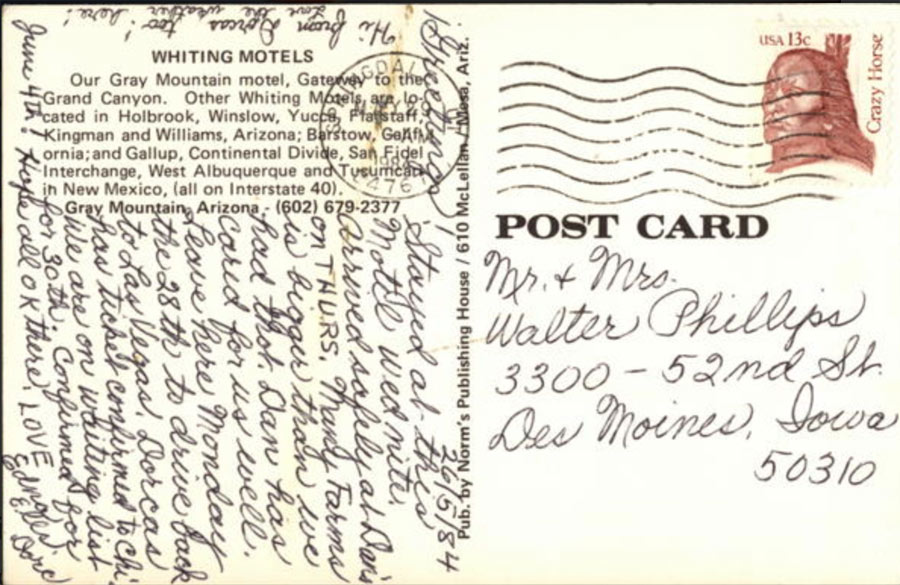 WHITING MOTELS
Our Gray Mountain motel, Gateway to the
Grand Canyon. Other Whiting Motels are lo-
cated in Holbrook, Winslow, Yucca, Flagstaff,
Kingman and Williams, Arizona; Barstow, Calif-
ornia; and Gallup, Continental Divide, San Fidel
Interchange, West Albuquerque and Tucumcari
in New Mexico, (all on Interstate 40).
Gray Mountain, Arizona - (602) 679-2377
26/5/84
Greetings,
Stayed at this
Motel Wed nite.
Arrived safely at Dan's
on THURS. Thundy Farms
is bigger than we
had thot. Dan has
cared for us well.
Leave here Monday
the 28th to drive back
to Las Vegas. Dorcas
has ticket confirmed to Chi
We are on waiting list
for 30th. Confirmed for
June 4th! Hope all OK there. LOVE
Hi from Dorcas too!
Love the weather here!
Pub. by Norm's Publishing House / 610 McLellan / Mesa, Ariz.
POST CARD
USA 13c
Crazy Horse
Mr. & Mrs.
Walter Phillips
3300 - 52nd St.
Des Moines, Iowa
50310